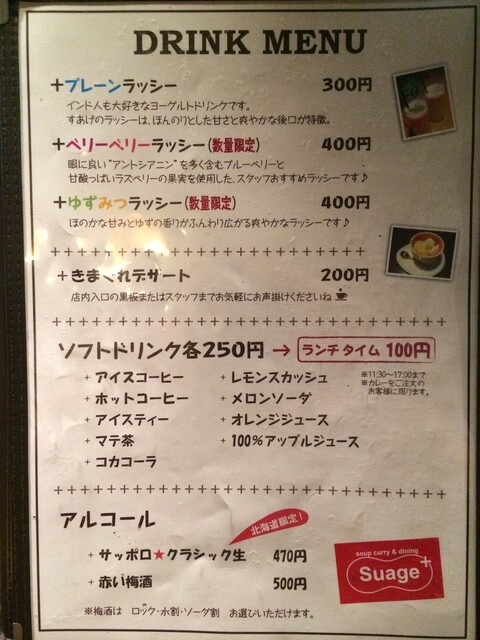 DRINK MENU
+プレーンラッシー 300円
インド人も大好きなヨーグルトドリンクです。
すあげのラッシーは、ほんのりとした甘さと爽やかな後口が特徴。
+ベリーベリーラッシー(数量限定) 400円
眼に良い"アントシアニン"を多く含むブルーベリーと
甘酸っぱいラズベリーの果実を使用した、スタッフおすすめラッシーです♪
+ゆずみつラッシー(数量限定) 400円
ほのかな甘みとゆずの香りがふんわり広がる爽やかなラッシーです♪
+きまぐれデザート 200円
店内入口の黒板またはスタッフまでお気軽にお声掛けくださいね
ソフトドリンク各250円 → ランチタイム 100円
※11:30~17:00まで
※カレーをご注文の
お客様に限ります。
+ アイスコーヒー + レモンスカッシュ
+ ホットコーヒー + メロンソーダ
+ アイスティー + オレンジジュース
+ マテ茶 + 100%アップルジュース
+ コカコーラ
アルコール
北海道限定!
+ サッポロ★クラシック生 470円
+ 赤い梅酒 500円
※梅酒は ロック・水割・ソーダ割 お選びいただけます。
soup curry & dining
Suage+